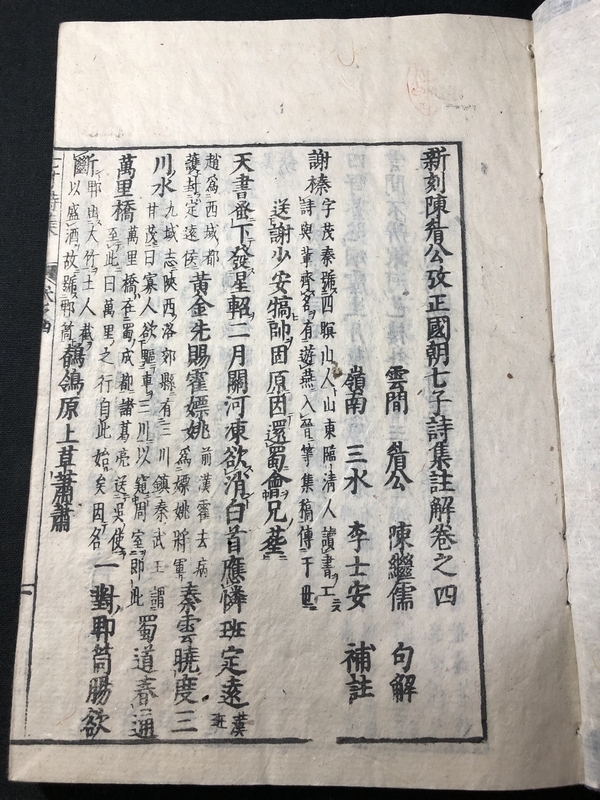 新刻陳眉公攷正國朝七子詩集註解卷之四
雲間 眉公 陳繼儒 句解
嶺南 三水 李士安 補註
謝榛 字茂秦號四溟山人山東臨清人讀書工
詩與輩齊名有遊燕入晉等集稿傳于世
送謝少安犒師固原因還蜀會兄葬
天書蚤下發星軺二月關河凍欲消白首應憐班定遠 漢班
超爲西域都
護封定遠侯 黃金先賜霍嫖姚 前漢霍去病
爲嫖姚將軍 秦雲曉度三
川水 九域志陝西洛郊縣有三川鎮秦武王謂
甘茂曰寡人欲驅車三川以窺周室即此 蜀道春通
萬里橋 萬里橋在蜀成都諸葛亮送吳使
至此曰萬里之行自此始矣因名 一對郫筒腸欲
斷 郫出大竹土人截
以盛酒故號郫筒 鶺鴒原上草蕭蕭